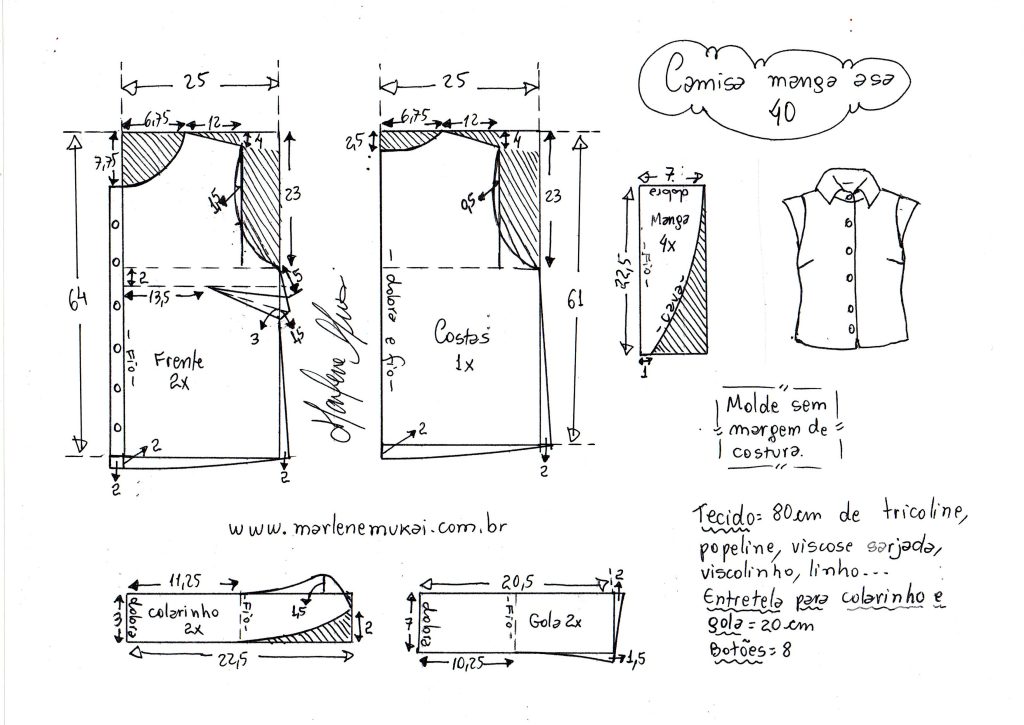 Camisa manga asa
40
25
6,75
12
4
7,75
23
1,5
64
2
13,5
5
3
1,5
Fio
Frente
2x
2
2
2
Marlene Mukai
25
6,75
12
4
2,5
0,5
23
61
dobra e fio
Costas
1x
2
2
7
dobra
Manga
4x
Fio
Cava
22,5
1
Molde sem
margem de
costura.
www.marlenemukai.com.br
Tecido= 80cm de tricoline,
popeline, viscose sarjada,
viscolinho, linho...
Entretela para colarinho e
gola = 20cm
Botões= 8
11,25
3
dobra
colarinho
2x
Fio
1,5
2
22,5
20,5
2
7
dobra
Fio
Gola 2x
10,25
1,5